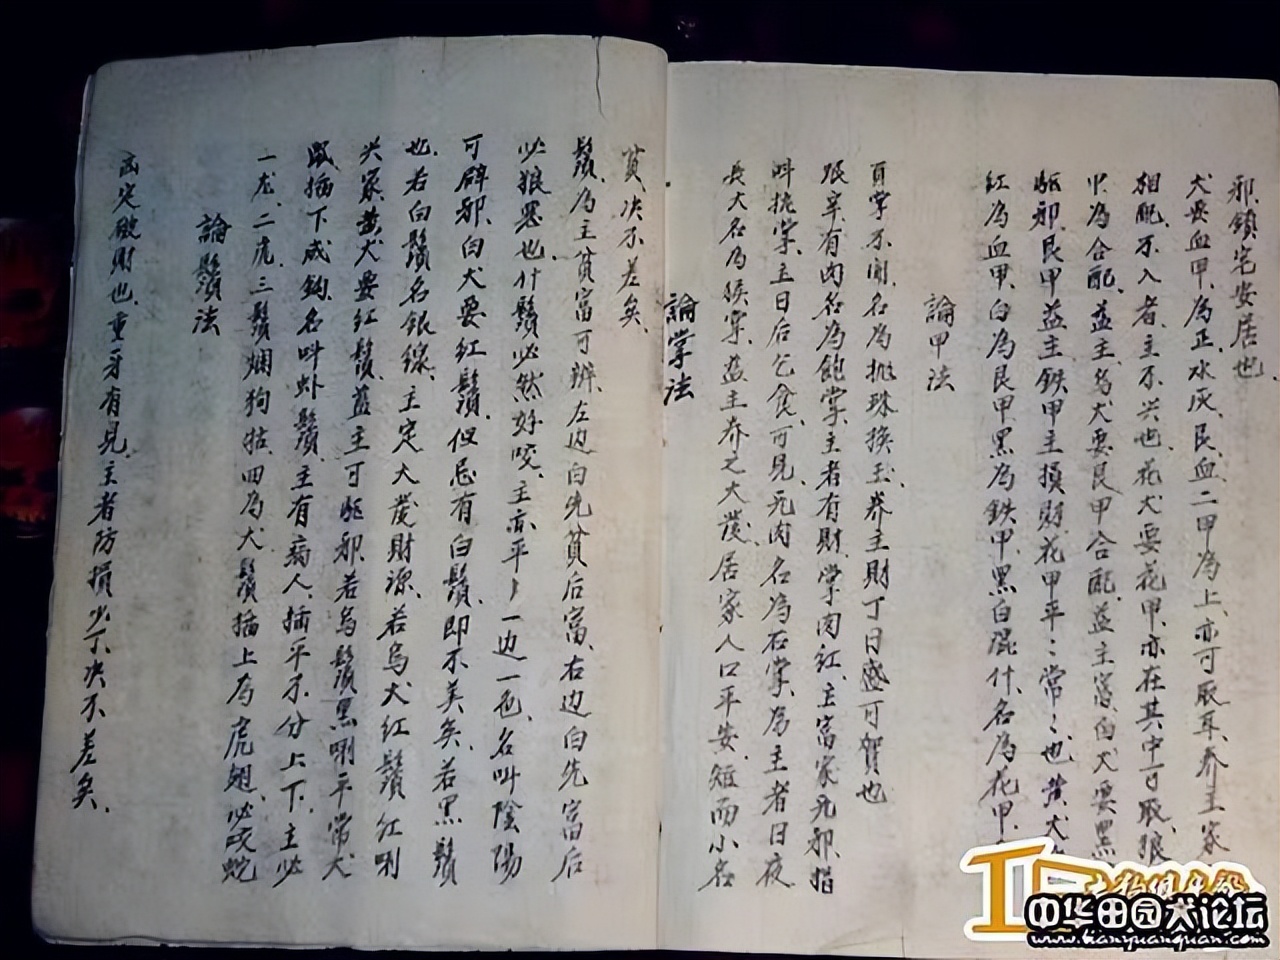 凶定破財也.重牙有見.主者防損少丁.决不差矣.
論鬚法
一龙.二虎.三鬚烟狗牯.四為犬鬚插上為虎翅.必咬蛇
鼠.插下成鈎.名叫虾鬚.主有病人.插平不分上下.主必
兴家.黄犬要红鬚.益主可駆邪.若乌鬚黑唎平常犬
也.若白鬚名銀線.主定大發財源.若烏犬红鬚红唎
可辟邪.白犬要红鬚.但忌有白鬚.即不美矣.若黑鬚
必狼恶也.什鬚必然好咬.主亦平.一边一色.名叫陰陽
鬚.為主贫富可辨.左边白先贫后富.右边白先富后
贫.决不差矣.
論掌法
長大名為猴掌.益主养之大發居家人口平安.短而小名
叫桃掌.主日后乞食.可見.无肉名為石掌.為主者日夜
艰辛.有肉名為飽掌.主者有財.掌肉红.主富家无邪.指
百掌不開.名為抛珠換玉.养主財丁日盛可賀也
論甲法
红為血甲.白為艮甲.黑為鉄甲.黑白混什.名為花甲.
駆邪.艮甲益主.鉄甲主損財.花甲平：常：也.黄犬
甲為合配.益主.烏犬要艮甲合配.益主富.白犬要黑
相配.不入者.主不兴也.花犬要花甲.亦在其中可取.狼
犬要血甲.為正.水灰.艮.血二甲為上.亦可取耳.养主家
邪.鎖宅安居也.
中华田园犬论坛
www.tianyuanquan.com